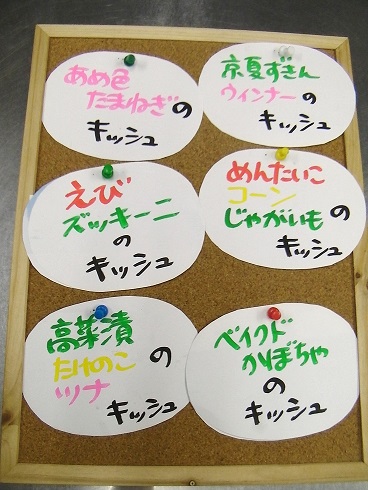 あめ色
たまねぎの
キッシュ
京夏ずきん
ウィンナーの
キッシュ
えび
ズッキーニ
の
キッシュ
めんたいこ
コーン
じゃがいもの
キッシュ
高菜漬
たけのこの
ツナ
キッシュ
ベイクド
かぼちゃ
の
キッシュ